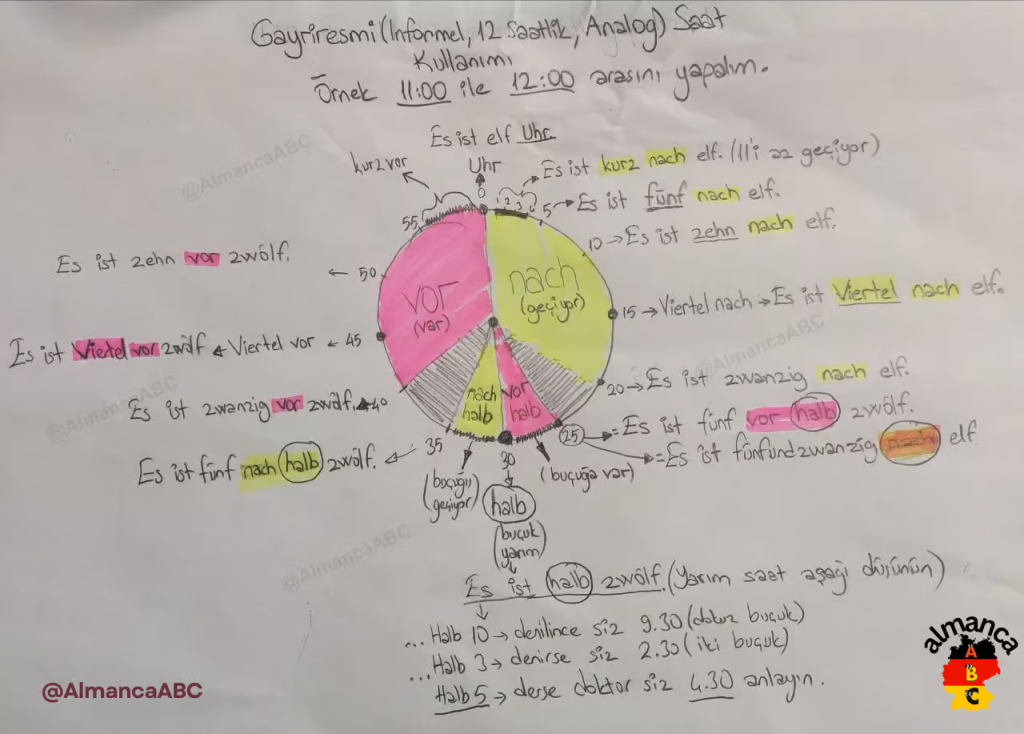 Gayriresmi (Informel, 12 Saatlik, Analog) Saat
Kullanımı
Örnek 11:00 ile 12:00 arasını yapalım.
Es ist elf Uhr
kurz vor
Uhr
Es ist kurz nach elf. (11'i az geçiyor)
0
1 2 3
5 → Es ist fünf nach elf.
55
10 → Es ist zehn nach elf.
Es ist zehn vor zwölf. ← 50
vor
(var)
nach
(geçiyor)
15 → Viertel nach → Es ist Viertel nach elf.
Es ist Viertel vor zwölf ← Viertel vor ← 45
20 → Es ist zwanzig nach elf.
Es ist zwanzig vor zwölf. ← 40
nach halb
vor halb
25 → = Es ist fünf vor halb zwölf.
→ = Es ist fünfundzwanzig nach elf.
Es ist fünf nach halb zwölf. ← 35
30
(buçuğu geçiyor)
(buçuğa var)
halb
(buçuk
yarım)
Es ist halb zwölf. (Yarım saat aşağı düşünün)
... Halb 10 → denilince siz 9.30 (dokuz buçuk)
... Halb 3 → denirse siz 2.30 (iki buçuk)
Halb 5 → derse doktor siz 4.30 anlayın.
@AlmancaABC
@AlmancaABC
@AlmancaABC
@AlmancaABC
@AlmancaABC
almanca
A
B
C